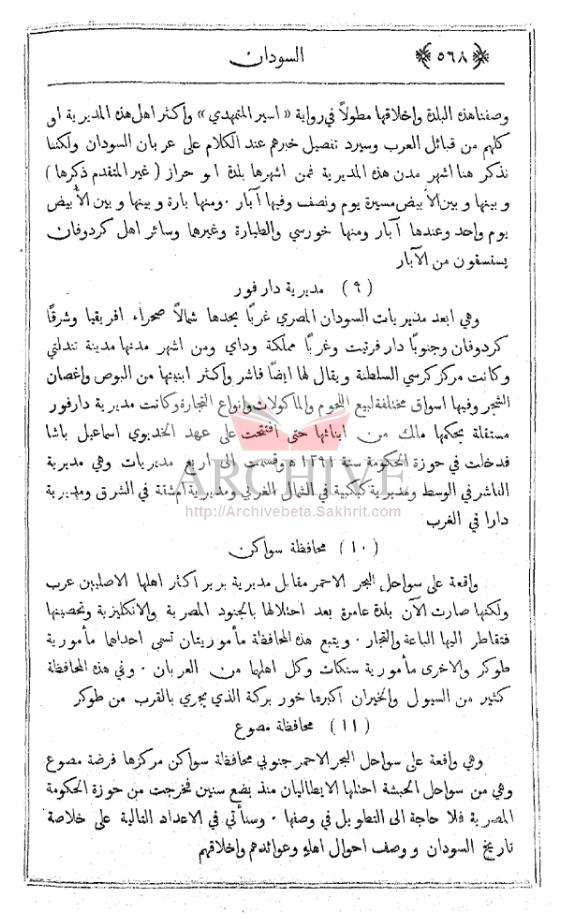 ﴿٥٦٨﴾
السودان
وصفنا هذه البلدة واخلاقها مطولاً في رواية «اسير المتمهدي» واكثر اهل هذه المديرية او
كلهم من قبائل العرب وسيرد تفصيل خبرهم عند الكلام على عربان السودان ولكننا
نذكر هنا اشهر مدن هذه المديرية فمن اشهرها بلدة ابو حراز (غير المتقدم ذكرها)
وبينها وبين الأبيض مسيرة يوم ونصف وفيها آبار . ومنها بارة وبينها وبين الأبيض
يوم واحد وعندها آبار ومنها خورسي والطيارة وغيرها وسائر اهل كردوفان
يستسقون من الآبار
(٩) مديرية دارفور
وهي ابعد مديريات السودان المصري غربًا يحدها شمالاً صحراء افريقيا وشرقًا
كردوفان وجنوبًا دار فرتيت وغربًا مملكة وداي ومن اشهر مدنها مدينة تندلتي
وكانت مركز كرسي السلطنة ويقال لها ايضًا فاشر واكثر ابنيتها من البوص واغصان
الشجر وفيها اسواق مختلفة لبيع اللحوم والماكولات وانواع التجارة وكانت مديرية دارفور
مستقلة يحكمها مالك من ابنائها حتى افتتحت على عهد الخديوي اسماعيل باشا
فدخلت في حوزة الحكومة سنة ١٢٩١ ه وقسمت الى اربع مديريات وهي مديرية
الفاشر في الوسط ومديرية كبكبية في الشمال الغربي ومديرية امشقة في الشرق ومديرية
دارا في الغرب
ARCHIVE
http://Archivebeta.Sakhrit.com
(١٠) محافظة سواكن
واقعة على سواحل البحر الاحمر مقابل مديرية بربر اكثر اهلها الاصليين عرب
ولكنها صارت الآن بلدة عامرة بعد احتلالها بالجنود المصرية والانكليزية وتحصينها
فتقاطر اليها الباعة والتجار . ويتبع هذه المحافظة مأموريتان تسمى احداهما مأمورية
طوكر والاخرى مأمورية سنكات وكل اهلها من العربان . وفي هذه المحافظة
كثير من السيول والخيران اكبرها خور بركة الذي يجري بالقرب من طوكر
(١١) محافظة مصوع
وهي واقعة على سواحل البحر الاحمر جنوبي محافظة سواكن مركزها فرضة مصوع
وهي من سواحل الحبشة احتلها الايطاليان منذ بضع سنين فخرجت من حوزة الحكومة
المصرية فلا حاجة الى التطويل في وصفها . وسنأتي في الاعداد التالية على خلاصة
تاريخ السودان ووصف احوال اهله وعوائدهم واخلاقهم